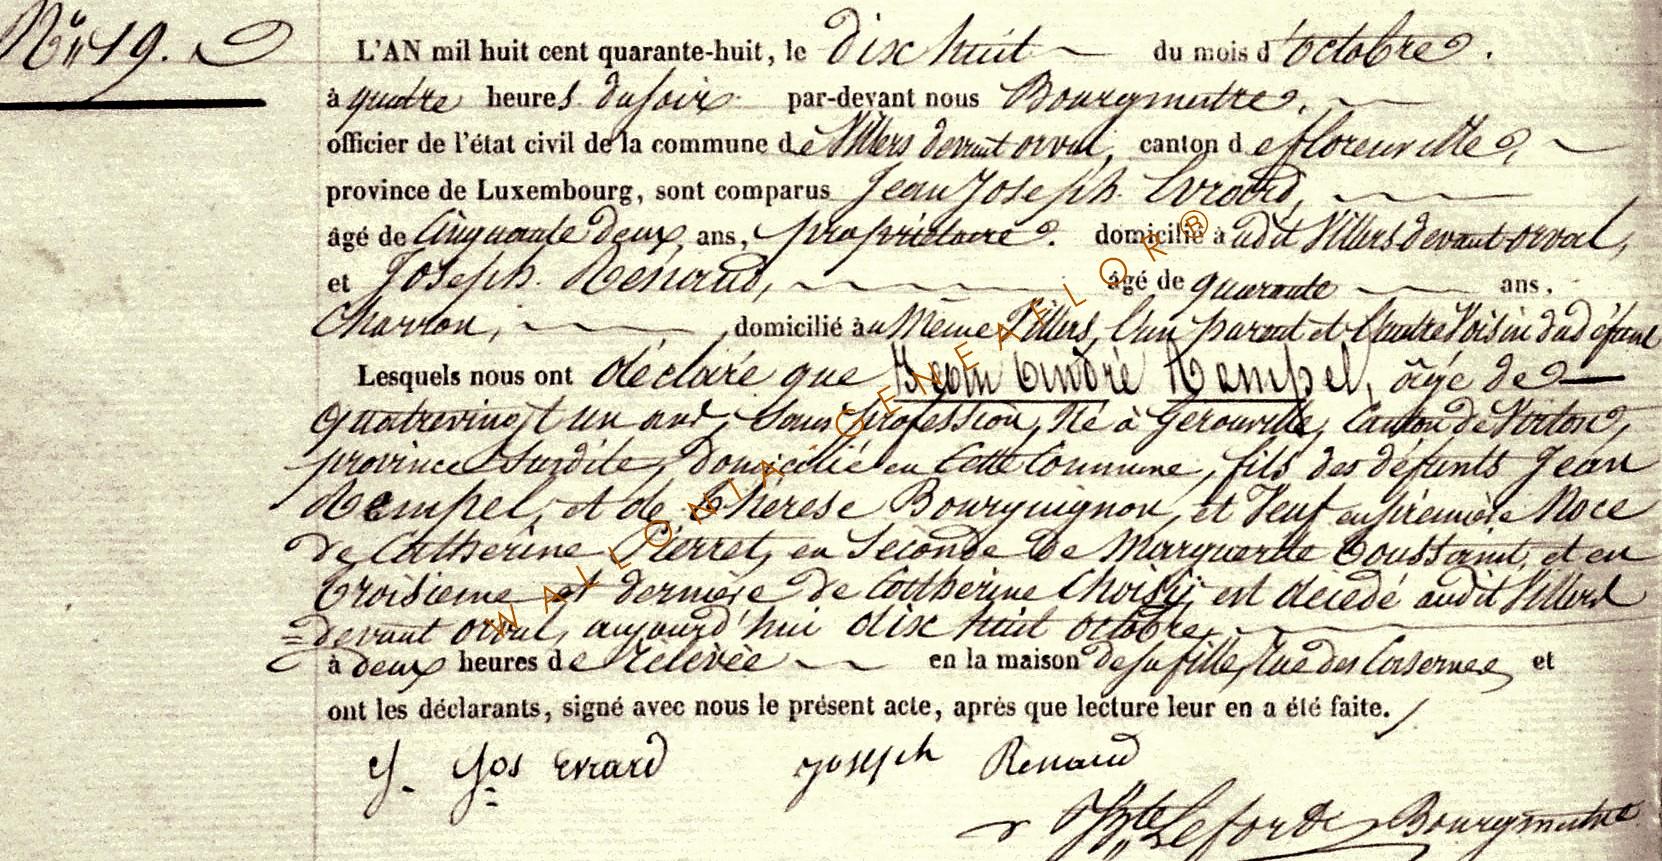 N° 19.
L'AN mil huit cent quarante-huit, le dix huit du mois d'octobre.
à quatre heures du soir par-devant nous Bourgmestre,
officier de l'état civil de la commune de Villers devant orval, canton de florenville,
province de Luxembourg, sont comparus Jean Joseph Evrard,
âgé de Cinquante deux, ans, propriétaire. domicilié à udit Villers devant orval,
et Joseph Renaud, âgé de quarante ans,
Charron, domicilié au Même Villers, l'un parent et l'autre Voisin dud défunt
Lesquels nous ont déclaré que Jean André Rampel, âgé de
quatrevingt un ans, Sans profession, Né à Gerouville, Canton de Virton,
province Susdite, domicilié en Cette Commune, fils des défunts Jean
Rempel, et de Therese Bourguignon, et Veuf en première Noce
de Catherine Pierret, en Seconde de Marguerite Toussaint, et en
troisieme et derniere de Catherine Choisij est décédé audit Villers
=devant orval, aujourd'hui dix huit octobre,
à deux heures de relevée en la maison de sa fille, Rue des Casernes et
ont les déclarants, signé avec nous le présent acte, après que lecture leur en a été faite.
J. Jos Evrard Joseph Renaud
Hte Leforde Bourgmestre
WALLONIA-GENEALOR®